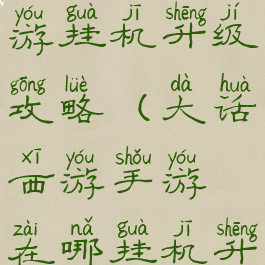 yóu guà jī shēng jí
游挂机升级
gōng lüè dà huà
攻略(大话
xī yóu shǒu yóu
西游手游
zài nǎ guà jī shēng
在哪挂机升